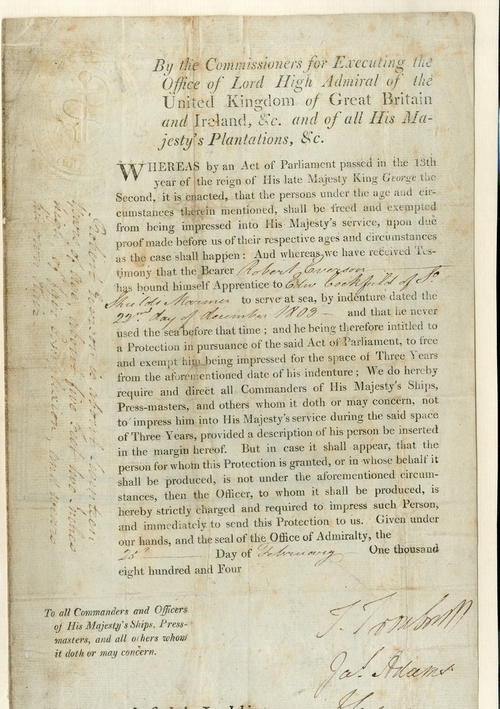 By the Commissioners for Executing the
Office of Lord High Admiral of the
United Kingdom of Great Britain
and Ireland, &c. and of all His Ma-
jesty's Plantations, &c.
WHEREAS by an Act of Parliament passed in the 13th
year of the reign of His late Majesty King George the
Second, it is enacted, that the persons under the age and cir-
cumstances therein mentioned, shall be freed and exempted
from being impressed into His Majesty's service, upon due
proof made before us of their respective ages and circumstances
as the case shall happen: And whereas we have received Tes-
timony that the Bearer Robert Everson
has bound himself Apprentice to Edw Cockfield of So
Shields Mariner to serve at sea, by indenture dated the
22nd day of December 1803 — and that he never
used the sea before that time; and he being therefore intitled to
a Protection in pursuance of the said Act of Parliament, to free
and exempt him being impressed for the space of Three Years
from the aforementioned date of his indenture; We do hereby
require and direct all Commanders of His Majesty's Ships,
Press-masters, and others whom it doth or may concern, not
to impress him into His Majesty's service during the said space
of Three Years, provided a description of his person be inserted
in the margin hereof. But in case it shall appear, that the
person for whom this Protection is granted, or in whose behalf it
shall be produced, is not under the aforementioned circum-
stances, then the Officer, to whom it shall be produced, is
hereby strictly charged and required to impress such Person,
and immediately to send this Protection to us. Given under
our hands, and the seal of the Office of Admiralty, the
25th Day of February One thousand
eight hundred and Four
To all Commanders and Officers
of His Majesty's Ships, Press-
masters, and all others whom
it doth or may concern.
Jas. Adams